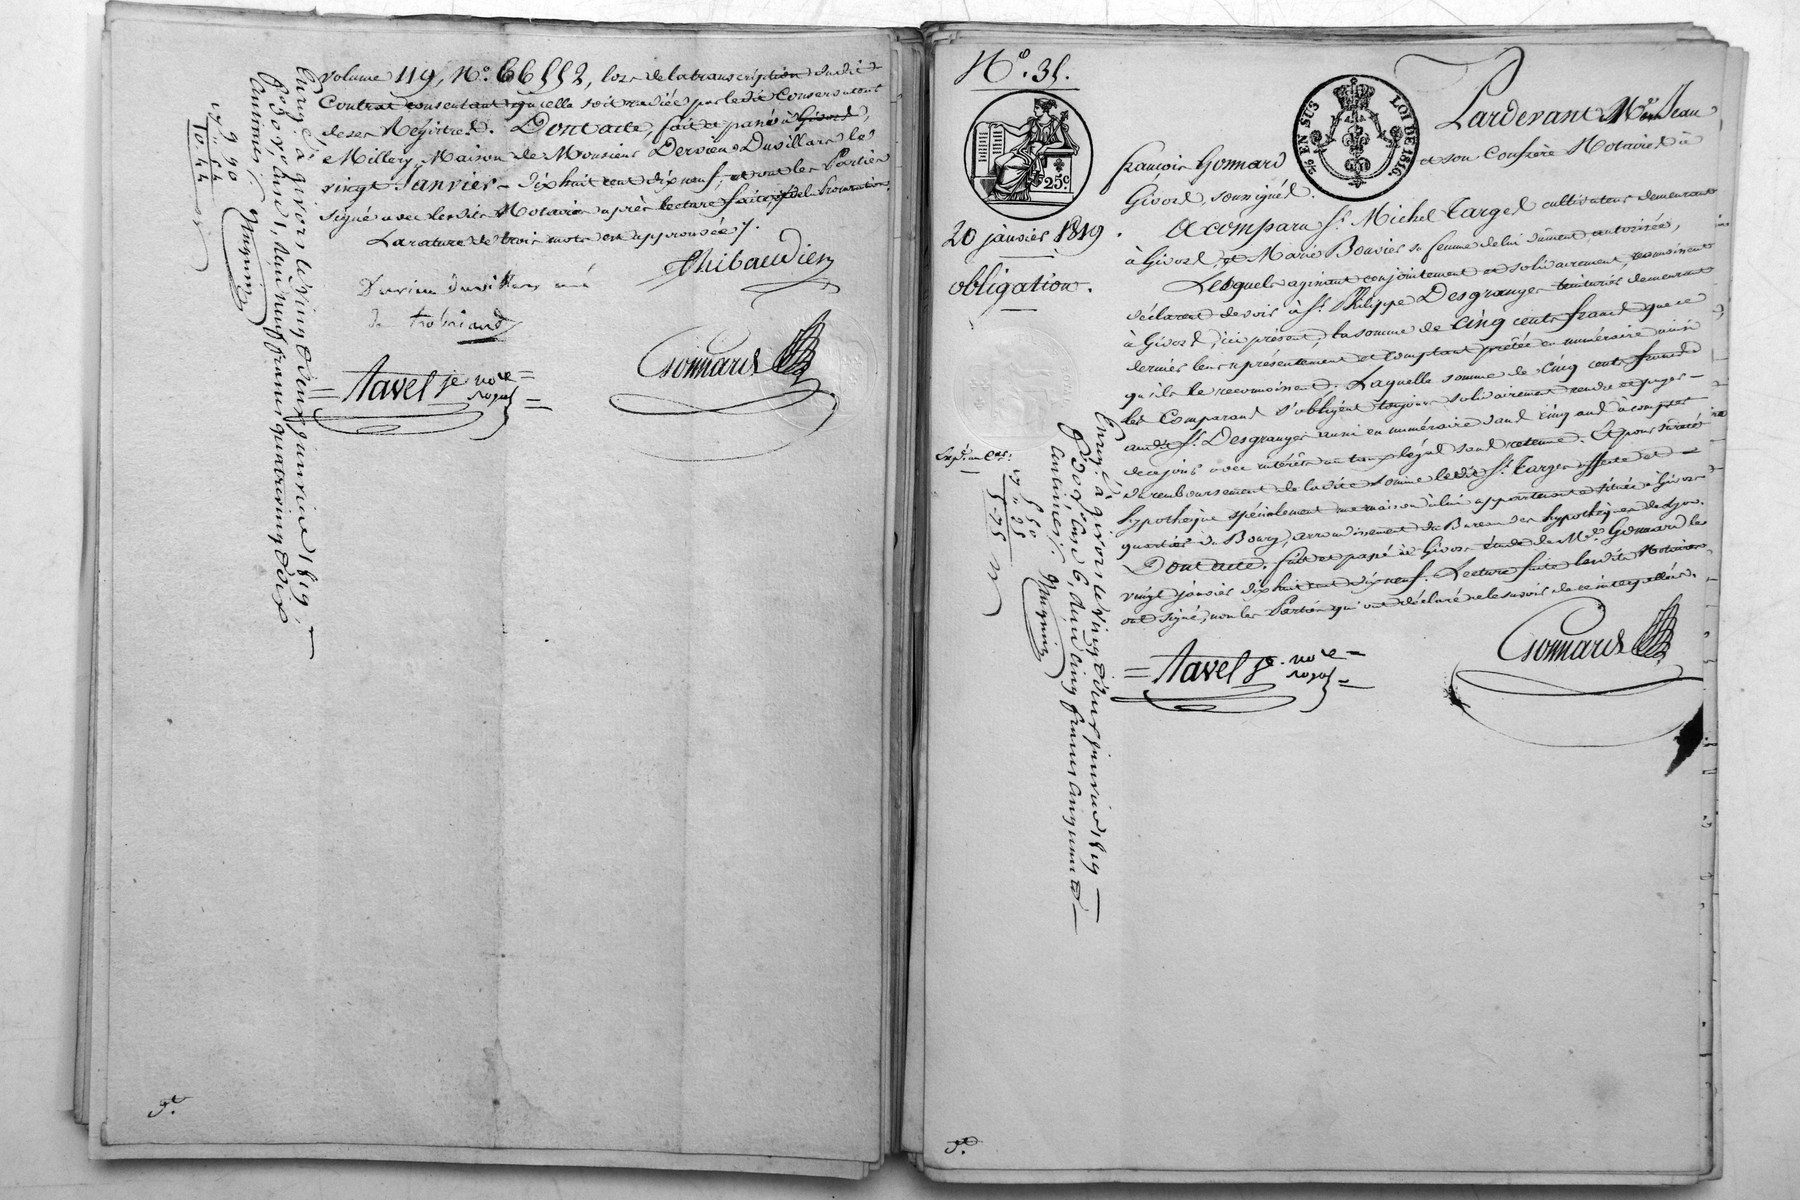 volume 119, N.o 66552, lors de la transcription dudit
Contrat consentant qu'elle soit radiée par ledit Conservateur
de ses Régistres. Dont acte, fait et passé à Givors,
Millery, Maison de Monsieur Dervieu Duvillars le
vingt Janvier dix huit cent dix neuf, et ont les Parties
signé avec lesdits Notaires après lecture faite
La rature de trois mots est approuvée
Thibaudier
Dervieu Duvillars née
de
Gonnard
= Tavel je. nore =
royal =
Enregé. à givors le vingt deux janvier 1819
neuf francs quatre vingt dix
centimes
9 90
10 44
N.o 35.
EN SUS
LOI DE 1816.
25c.
20 janvier 1819
obligation.
Pardevant Me. Jean
françois Gonnard et son Confrère Notaires à
Givors, soussignés.
A comparu Sr. Michel Targes cultivateur demeurant
à Givors, et Marie Bouvier sa femme de lui dûment autorisée,
Lesquels agissant conjointement et solidairement, reconnaissent
déclarent devoir à Sr. Philippe Desgranges teinturier demeurant
à Givors, ici présent, la somme de Cinq cents francs que ce
dernier leur a présentement et comptant prêtée en numéraire ainsi
qu'ils le reconnoissent. Laquelle somme de cinq cents francs
les Comparans s'obligent solidairement rendre et payer
audit Sr. Desgranges aussi en numéraire dans cinq ans à compter
de ce jour avec intérêts au taux légal sans retenue. Et pour sureté
du remboursement de ladite somme ledit Sr. Targes affecte et
hypothèque spécialement une maison à lui appartenant située à Givors
quartier du Bourg, arrondissement du Bureau des hypothèques de Lyon.
Dont acte. fait et passé à Givors étude de Me. Gonnard le
vingt janvier dix huit cent dix neuf. Lecture faite lesdits Notaires
ont signé, non les Parties qui ont déclaré ne le savoir de ce interpellées.
Gonnard
= Tavel je. nore =
royal =
Enregé. à givors le vingt deux janvier 1819
cinq francs cinquante
centimes
5 50
5-75